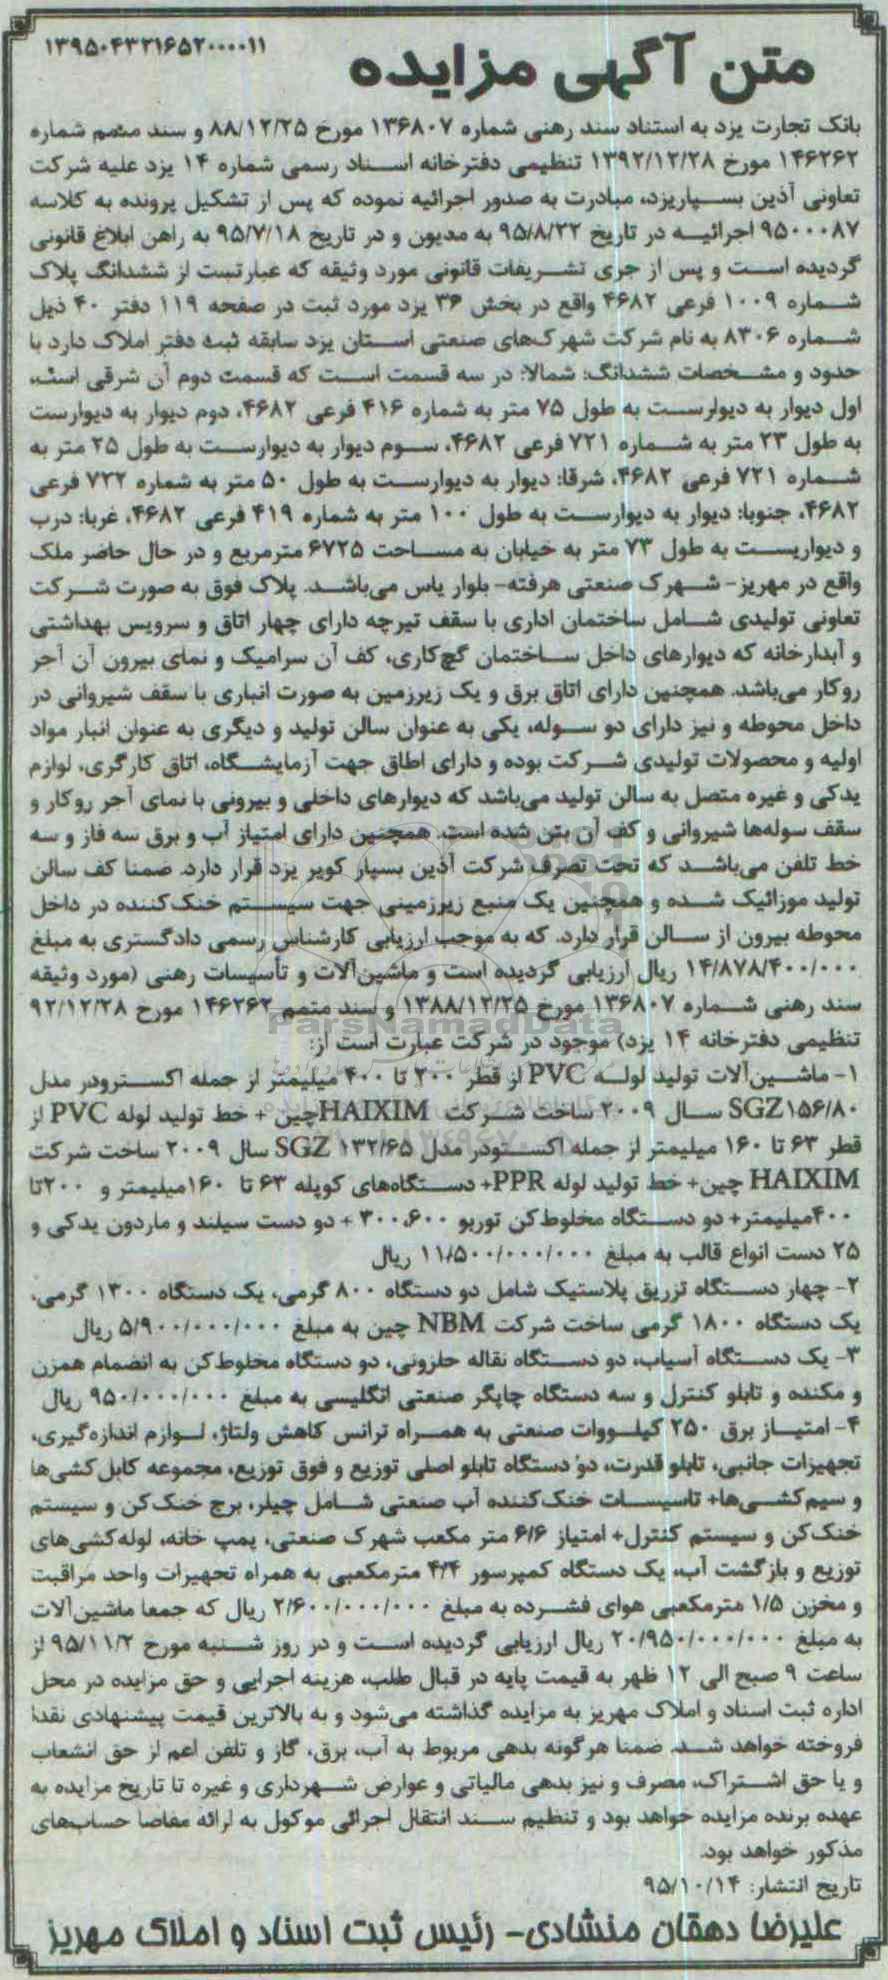 متن آگهی مزایده
۱۳۹۵۰۴۳۲۱۶۵۲۰۰۰۰۱۱
بانک تجارت یزد به استناد سند رهنی شماره ۱۳۶۸۰۷ مورخ ۸۸/۱۲/۲۵ و سند متمم شماره
۱۴۶۲۶۲ مورخ ۱۳۹۲/۱۲/۲۸ تنظیمی دفترخانه اسناد رسمی شماره ۱۴ یزد علیه شرکت
تعاونی آذین بسپاریزد، مبادرت به صدور اجرائیه نموده که پس از تشکیل پرونده به کلاسه
۹۵۰۰۰۸۷ اجرائیه در تاریخ ۹۵/۸/۲۲ به مدیون و در تاریخ ۹۵/۷/۱۸ به راهن ابلاغ قانونی
گردیده است و پس از جری تشریفات قانونی مورد وثیقه که عبارتست از ششدانگ پلاک
شماره ۱۰۰۹ فرعی ۴۶۸۲ واقع در بخش ۳۶ یزد مورد ثبت در صفحه ۱۱۹ دفتر ۴۰ ذیل
شماره ۸۳۰۶ به نام شرکت شهرک‌های صنعتی استان یزد سابقه ثبت دفتر املاک دارد با
حدود و مشخصات ششدانگ: شمالا: در سه قسمت است که قسمت دوم آن شرقی است،
اول دیوار به دیوارست به طول ۷۵ متر به شماره ۴۱۶ فرعی ۴۶۸۲، دوم دیوار به دیوارست
به طول ۲۳ متر به شماره ۷۲۱ فرعی ۴۶۸۲، سوم دیوار به دیوارست به طول ۲۵ متر به
شماره ۷۲۱ فرعی ۴۶۸۲، شرقا: دیوار به دیوارست به طول ۵۰ متر به شماره ۷۲۲ فرعی
۴۶۸۲، جنوبا: دیوار به دیوارست به طول ۱۰۰ متر به شماره ۴۱۹ فرعی ۴۶۸۲، غربا: درب
و دیواریست به طول ۷۳ متر به خیابان به مساحت ۶۷۲۵ مترمربع و در حال حاضر ملک
واقع در مهریز- شهرک صنعتی هرفته- بلوار یاس می‌باشد. پلاک فوق به صورت شرکت
تعاونی تولیدی شامل ساختمان اداری با سقف تیرچه دارای چهار اتاق و سرویس بهداشتی
و آبدارخانه که دیوارهای داخل ساختمان گچ‌کاری، کف آن سرامیک و نمای بیرون آن آجر
روکار می‌باشد. همچنین دارای اتاق برق و یک زیرزمین به صورت انباری با سقف شیروانی در
داخل محوطه و نیز دارای دو سوله، یکی به عنوان سالن تولید و دیگری به عنوان انبار مواد
اولیه و محصولات تولیدی شرکت بوده و دارای اطاق جهت آزمایشگاه، اتاق کارگری، لوازم
یدکی و غیره متصل به سالن تولید می‌باشد که دیوارهای داخلی و بیرونی با نمای آجر روکار و
سقف سوله‌ها شیروانی و کف آن بتن شده است. همچنین دارای امتیاز آب و برق سه فاز و سه
خط تلفن می‌باشد که تحت تصرف شرکت آذین بسپار کویر یزد قرار دارد. ضمنا کف سالن
تولید موزائیک شده و همچنین یک منبع زیرزمینی جهت سیستم خنک‌کننده در داخل
محوطه بیرون از سالن قرار دارد. که به موجب ارزیابی کارشناس رسمی دادگستری به مبلغ
۱۴/۸۷۸/۴۰۰/۰۰۰ ریال ارزیابی گردیده است و ماشین‌آلات و تأسیسات رهنی (مورد وثیقه
سند رهنی شماره ۱۳۶۸۰۷ مورخ ۱۳۸۸/۱۲/۲۵ و سند متمم ۱۴۶۲۶۲ مورخ ۹۲/۱۲/۲۸
تنظیمی دفترخانه ۱۴ یزد) موجود در شرکت عبارت است از:
۱- ماشین‌آلات تولید لوله PVC از قطر ۲۰۰ تا ۴۰۰ میلیمتر از جمله اکسترودر مدل
SGZ۱۵۶/۸۰ سال ۲۰۰۹ ساخت شرکت HAIXIMچین + خط تولید لوله PVC از
قطر ۶۳ تا ۱۶۰ میلیمتر از جمله اکستودر مدل SGZ ۱۳۲/۶۵ سال ۲۰۰۹ ساخت شرکت
HAIXIM چین+ خط تولید لوله PPR+ دستگاه‌های کوپله ۶۳ تا ۱۶۰میلیمتر و ۲۰۰تا
۴۰۰میلیمتر+ دو دستگاه مخلوط‌کن توربو ۳۰۰،۶۰۰ + دو دست سیلند و ماردون یدکی و
۲۵ دست انواع قالب به مبلغ ۱۱/۵۰۰/۰۰۰/۰۰۰ ریال
۲- چهار دستگاه تزریق پلاستیک شامل دو دستگاه ۸۰۰ گرمی، یک دستگاه ۱۳۰۰ گرمی،
یک دستگاه ۱۸۰۰ گرمی ساخت شرکت NBM چین به مبلغ ۵/۹۰۰/۰۰۰/۰۰۰ ریال
۳- یک دستگاه آسیاب، دو دستگاه نقاله حلزونی، دو دستگاه مخلوط‌کن به انضمام همزن
و مکنده و تابلو کنترل و سه دستگاه چاپگر صنعتی انگلیسی به مبلغ ۹۵۰/۰۰۰/۰۰۰ ریال
۴- امتیاز برق ۲۵۰ کیلووات صنعتی به همراه ترانس کاهش ولتاژ، لوازم اندازه‌گیری،
تجهیزات جانبی، تابلو قدرت، دو دستگاه تابلو اصلی توزیع و فوق توزیع، مجموعه کابل‌کشی‌ها
و سیم‌کشی‌ها+ تاسیسات خنک‌کننده آب صنعتی شامل چیلر، برج خنک‌کن و سیستم
خنک‌کن و سیستم کنترل+ امتیاز ۶/۶ متر مکعب شهرک صنعتی، پمپ خانه، لوله‌کشی‌های
توزیع و بازگشت آب، یک دستگاه کمپرسور ۴/۴ مترمکعبی به همراه تجهیزات واحد مراقبت
و مخزن ۱/۵ مترمکعبی هوای فشرده به مبلغ ۲/۶۰۰/۰۰۰/۰۰۰ ریال که جمعا ماشین‌آلات
به مبلغ ۲۰/۹۵۰/۰۰۰/۰۰۰ ریال ارزیابی گردیده است و در روز شنبه مورخ ۹۵/۱۱/۲ از
ساعت ۹ صبح الی ۱۲ ظهر به قیمت پایه در قبال طلب، هزینه اجرایی و حق مزایده در محل
اداره ثبت اسناد و املاک مهریز به مزایده گذاشته می‌شود و به بالاترین قیمت پیشنهادی نقدا
فروخته خواهد شد. ضمنا هرگونه بدهی مربوط به آب، برق، گاز و تلفن اعم از حق انشعاب
و یا حق اشتراک، مصرف و نیز بدهی مالیاتی و عوارض شهرداری و غیره تا تاریخ مزایده به
عهده برنده مزایده خواهد بود و تنظیم سند انتقال اجرائی موکول به ارائه مفاصا حساب‌های
مذکور خواهد بود.
تاریخ انتشار: ۹۵/۱۰/۱۴
علیرضا دهقان منشادی- رئیس ثبت اسناد و املاک مهریز
ParsNamadData